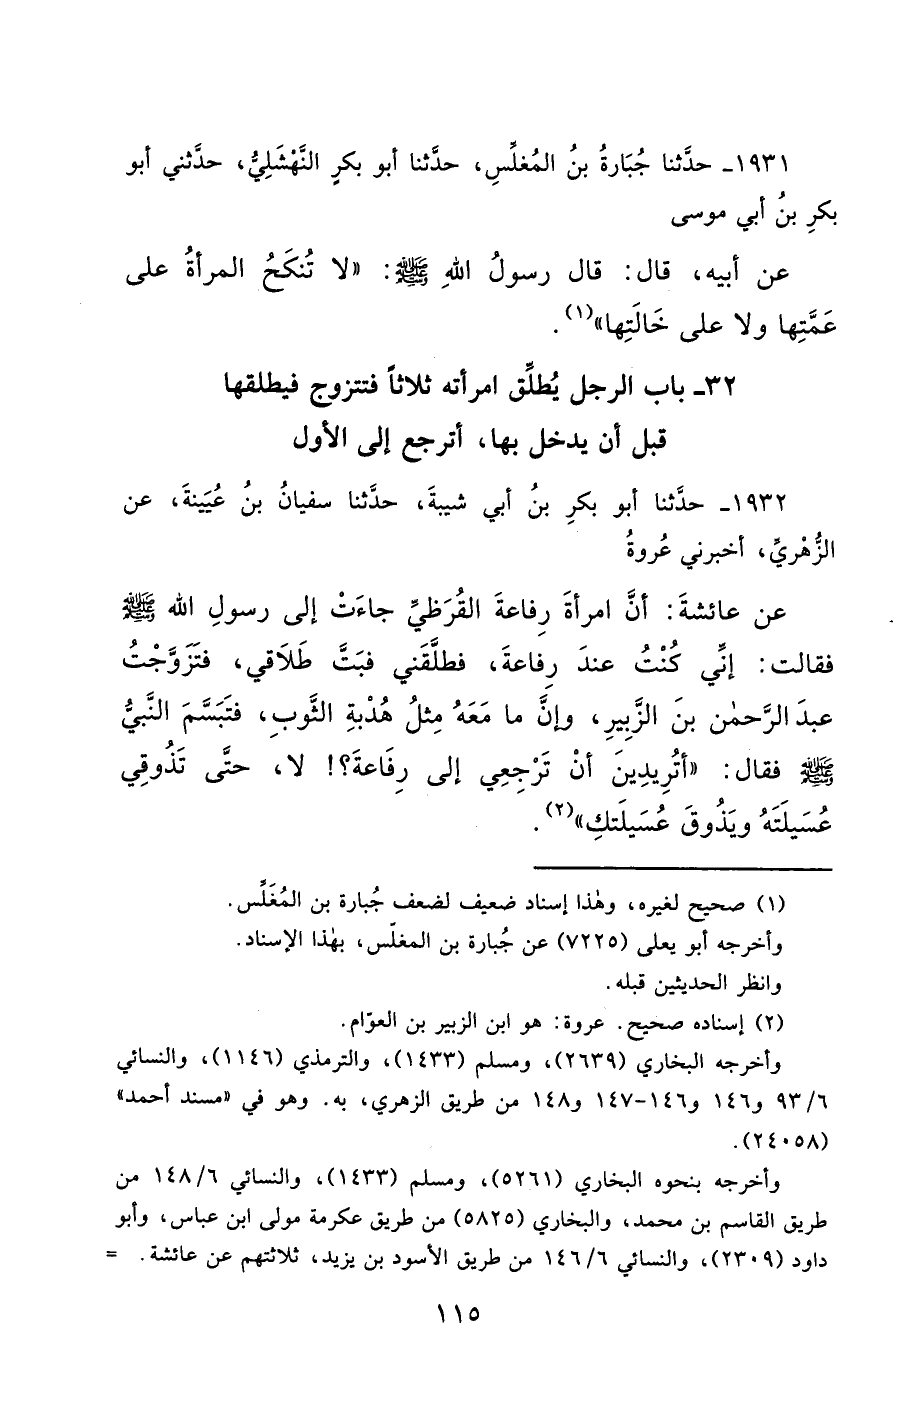 ١٩٣١ـ حدَّثنا جُبَارةُ بنُ المُغلِّسِ، حدَّثنا أبو بكرٍ النَّهْشَليُّ، حدَّثني أبو
بكرِ بنُ أبي موسى
عن أبيه، قال: قال رسولُ اللهِ ﷺ: «لا تُنكَحُ المرأةُ على
عَمَّتِها ولا على خَالَتِها»(١).
٣٢ـ باب الرجل يُطلِّق امرأته ثلاثاً فتتزوج فيطلقها
قبل أن يدخل بها، أترجع إلى الأول
١٩٣٢ـ حدَّثنا أبو بكرِ بنُ أبي شيبةَ، حدَّثنا سفيانُ بنُ عُيَينةَ، عن
الزُّهْريِّ، أخبرني عُروةُ
عن عائشةَ: أنَّ امرأةَ رِفاعةَ القُرَظيِّ جاءَتْ إلى رسولِ الله ﷺ
فقالت: إنِّي كُنْتُ عندَ رِفاعةَ، فطلَّقَني فبَتَّ طَلَاقي، فتَزَوَّجْتُ
عبدَ الرَّحمٰن بنَ الزَّبِيرِ، وإنَّ ما مَعَهُ مِثلُ هُدْبةِ الثَّوبِ، فتَبَسَّمَ النَّبيُّ
ﷺ فقال: «أتُرِيدِينَ أنْ تَرْجِعِي إلى رِفَاعةَ؟! لا، حتَّى تَذُوقِي
عُسَيلَتَهُ ويَذُوقَ عُسَيلَتكِ»(٢).
(١) صحيح لغيره، وهٰذا إسناد ضعيف لضعف جُبارة بن المُغَلِّس.
وأخرجه أبو يعلى (٧٢٢٥) عن جُبارة بن المغلّس، بهٰذا الإسناد.
وانظر الحديثين قبله.
(٢) إسناده صحيح. عروة: هو ابن الزبير بن العوّام.
وأخرجه البخاري (٢٦٣٩)، ومسلم (١٤٣٣)، والترمذي (١١٤٦)، والنسائي
٦/ ٩٣ و١٤٦ و١٤٦-١٤٧ و١٤٨ من طريق الزهري، به. وهو في «مسند أحمد»
(٢٤٠٥٨).
وأخرجه بنحوه البخاري (٥٢٦١)، ومسلم (١٤٣٣)، والنسائي ٦/ ١٤٨ من
طريق القاسم بن محمد، والبخاري (٥٨٢٥) من طريق عكرمة مولى ابن عباس، وأبو
داود (٢٣٠٩)، والنسائي ٦/ ١٤٦ من طريق الأسود بن يزيد، ثلاثتهم عن عائشة. =
١١٥